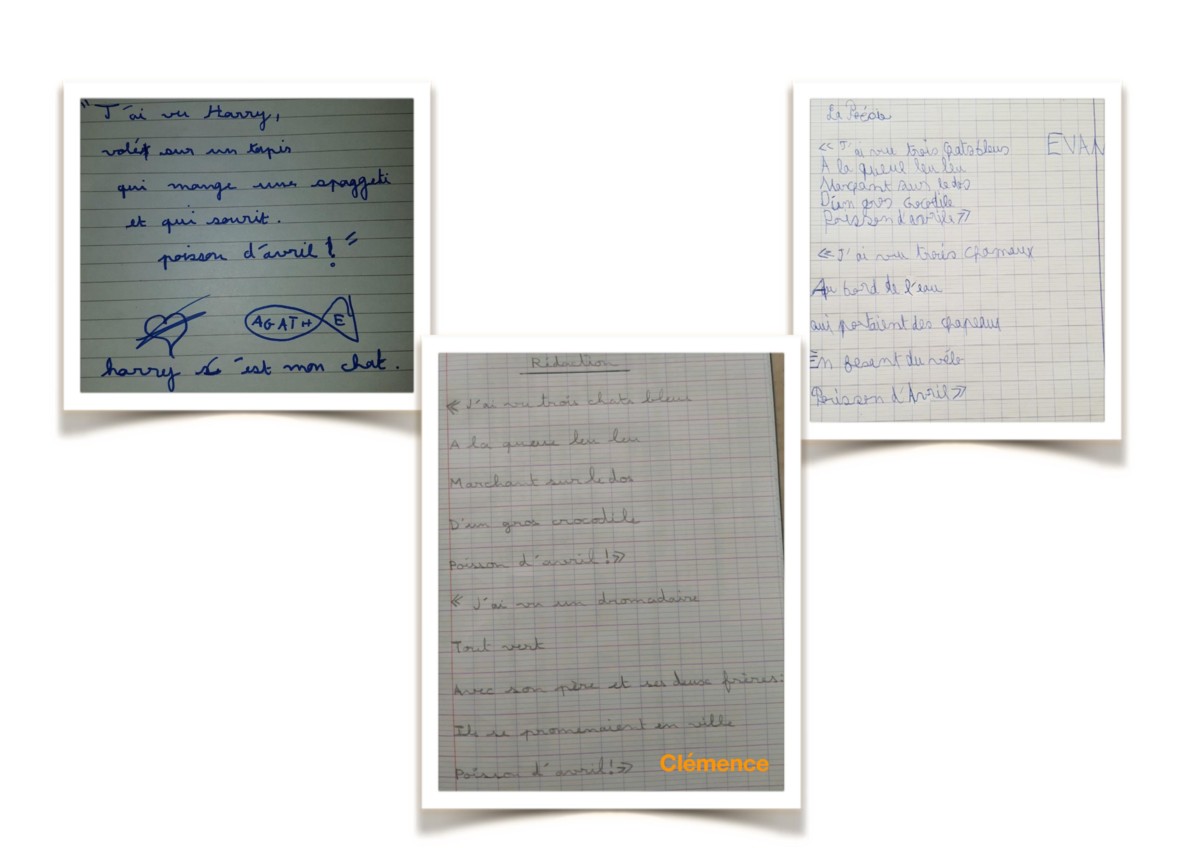 "J'ai vu Harry,
volér sur un tapis
qui mange une spaggeti
et qui sourit.
poisson d'avril ! "
AGATHE
harry c'est mon chat.
Rédaction
« J'ai vu trois chats bleus
A la queue leu leu
Marchant sur le dos
D'un gros crocodile
Poisson d'avril !»
« J'ai vu un dromadaire
Tout vert
Avec son père et ses deux frères.
Ils se promenaient en ville
Poisson d'avril!»
Clémence
La
EVAN
« J'ai vu trois bleus
A la queue leu leu
sur le dos
D'un gros crocodile
Poisson d'avrile »
« J'ai vu trois chamaux
Au bord de l'eau
qui portaient des chapeaux
En fesent du vélo
Poisson d'Avril »